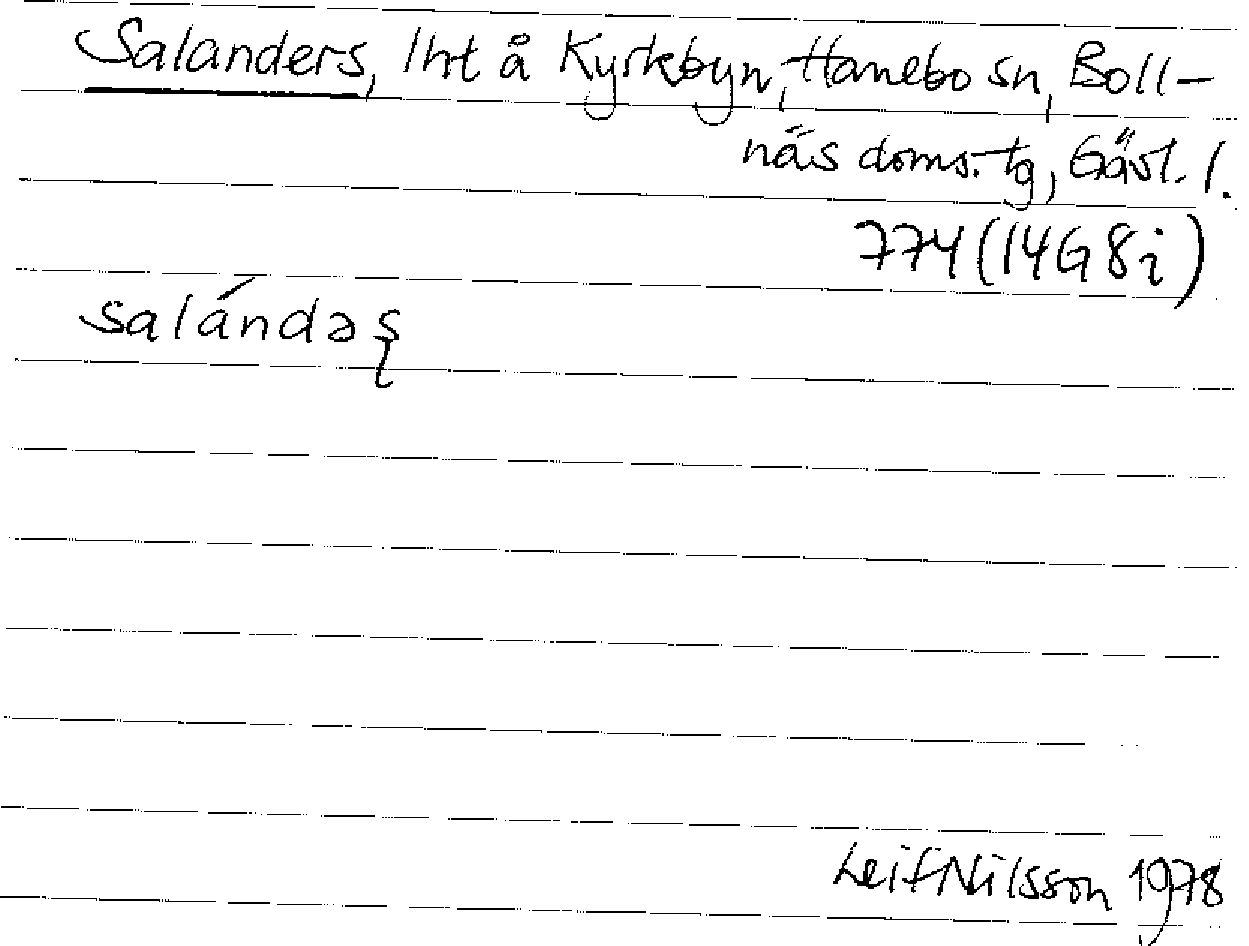 Salanders, lht å Kyrkbyn, Hanebo sn, Boll-
näs doms. tg, Gävl. l.
774 (14G 8i)
salándəʂ
Leif Nilsson 1978